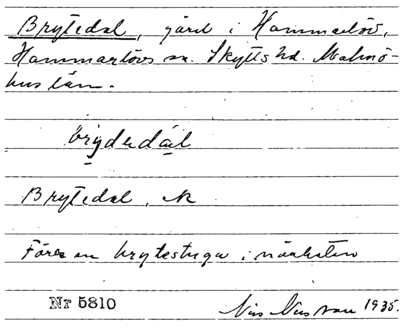 Brytedal, gård i Hammarlöv,
Hammarlövs sn. Skytts hd. Malmö-
hus län.
brydedál
Brytedal, N
Förr en brytestuga i närheten
Nr 5810 Nils Nilsson 1935.